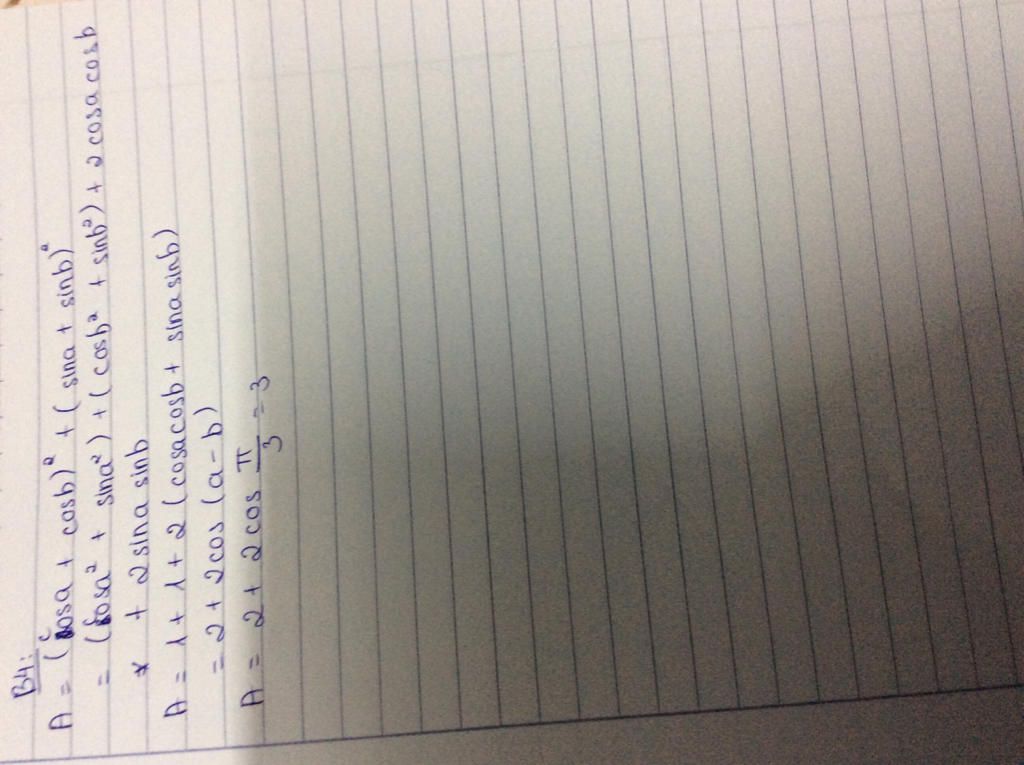 B4:
A = (cosa + cosb)² + (sina + sinb)²
= (cosa² + sina²) + (cosb² + sinb²) + 2cosacosb
* + 2sina sinb
A = 1 + 1 + 2(cosacosb + sinasinb)
= 2 + 2cos(a-b)
A = 2 + 2cos π/3 = 3